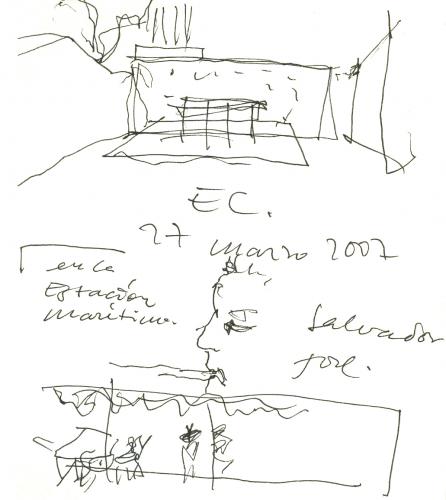 E C.
27 marzo 2007
en la
Estación
marítima.
Salvador
José.